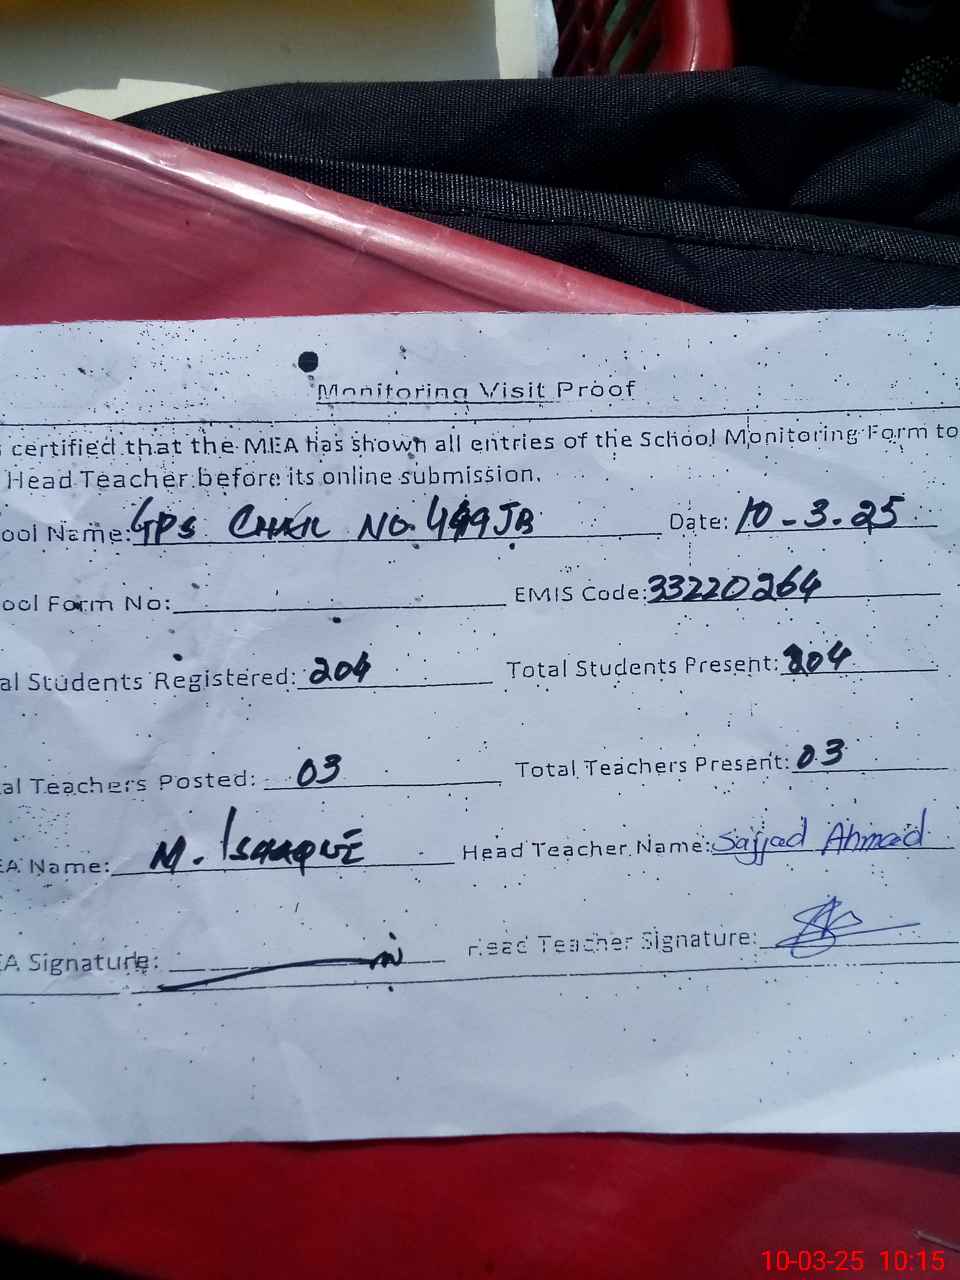 Monitoring Visit Proof
certified that the MEA has shown all entries of the School Monitoring Form to
Head Teacher before its online submission.
ool Name: GPS CHAK NO. 449JB Date: 10-3-25
ool Form No: EMIS Code: 33220264
al Students Registered: 204 Total Students Present: 204
al Teachers Posted: 03 Total Teachers Present: 03
EA Name: M. Ishaque Head Teacher Name: Sajjad Ahmad
EA Signature: Head Teacher Signature:
10-03-25 10:15